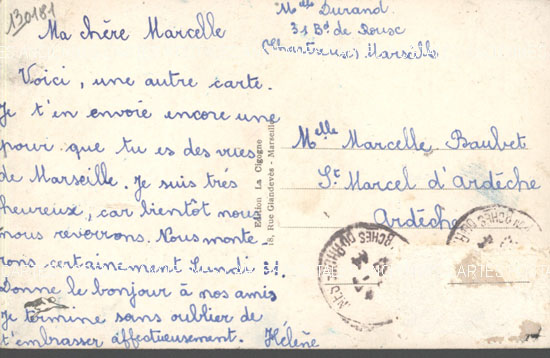 130181
Ma chère Marcelle
Voici, une autre carte.
Je t'en envoie encore une
pour que tu es des vues
de Marseille. Je suis très
heureuse, car bientôt nous
nous reverrons. Nous monte-
rons certainement Lundi
Donne le bonjour à nos amis
Je termine sans oublier de
t'embrasser affectueusement. Hélène
Edition La Cigogne
18, Rue Glandevès - Marseille
Melle Durand
31 Bd de
(Chartreux) Marseille
Melle Marcelle Baubet
St Marcel d'Ardèche
Ardèche
BCHES DU RHONE